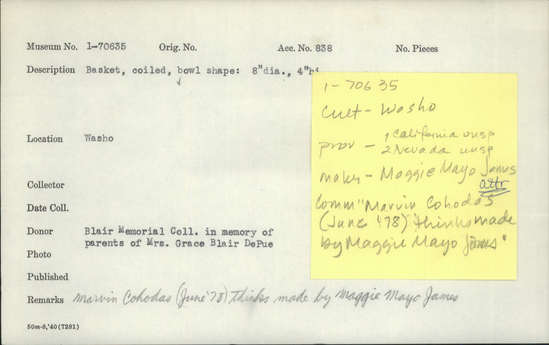 Museum No. 1-70635 Orig. No. Acc. No. 838 No. Pieces
Description Basket, coiled, bowl shape: 8"dia., 4"hi
Location Washo
Collector
Date Coll.
Donor Blair Memorial Coll. in memory of
parents of Mrs. Grace Blair DePue
Photo
Published
Remarks Marvin Cohodas (June '78) thinks made by Maggie Mayo James
50m-8,'40(7281)
1-70635
Cult - Washo
prov - 1 California unsp
2 Nevada unsp
maker - Maggie Mayo James
attr
Comm "Marvin Cohodas
(June '78) thinks made
by Maggie Mayo James"